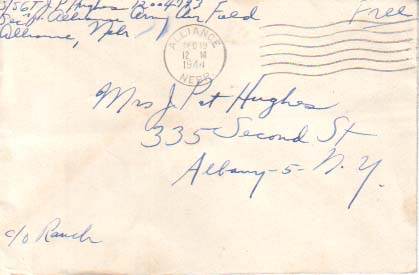 S/SGT J. P. Hughes 12004193
Alliance Army Air Field
Alliance, Nebr
Free
ALLIANCE
12 M
1944
NEBR.
Mrs J. Pat Hughes
335 Second St
Albany-5-N.Y.
c/o Ranch